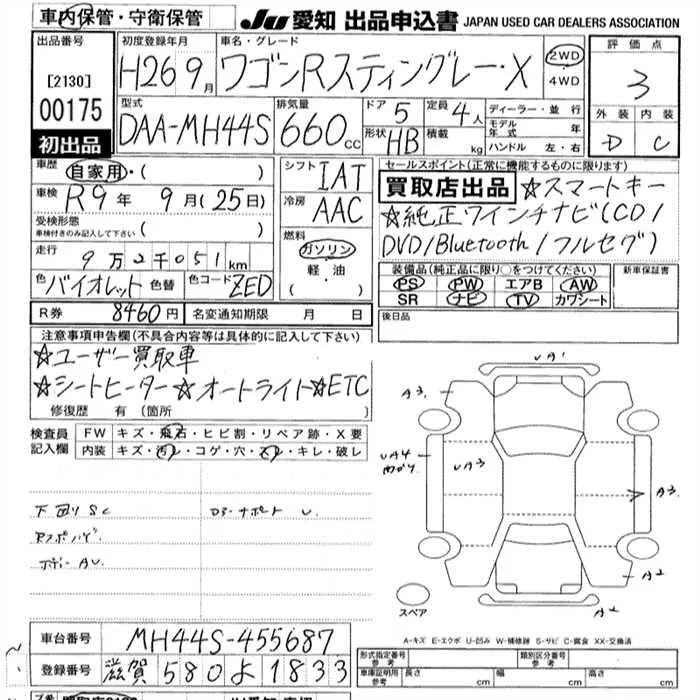 車内保管・守衛保管
JU 愛知 出品申込書 JAPAN USED CAR DEALERS ASSOCIATION
出品番号
[2130]
00175
初出品
初度登録年月
H26 9月
車名・グレード
ワゴンRスティングレー・X
2WD
4WD
評価点
3
外装 内装
D C
型式
DAA-MH44S
排気量
660cc
ドア 5
定員 4人
形状 HB
積載 kg
ディーラー・並行
モデル年式 年
ハンドル 左・右
車歴 自家用・( )
車検 R9年 9月(25日)
受検形態
車検付きのみ記入して下さい( )
走行
9万2千051km
色 バイオレット 色替 色コード ZED
シフト IAT
冷房 AAC
燃料
ガソリン
軽・油
・( )
セールスポイント(正常に機能するものに限ります)
買取店出品 ☆スマートキー
☆純正ワインチナビ(CD/
DVD/Bluetooth/フルセグ)
装備品(純正品に限り○をつけてください)
PS PW エアB AW
SR ナビ TV カワシート
新車保証書
R券 8460円 名変通知期限 月 日
後日品
注意事項申告欄(不具合内容等は具体的に記入して下さい)
☆ユーザー買取車
☆シートヒーター ☆オートライト☆ETC
修復歴 有 [箇所 ]
検査員記入欄
FW キズ・飛石・ヒビ割・リペア跡・X要
内装 キズ・汚レ・コゲ・穴・スレ・キレ・破レ
下回り SC
UA1
A3
UA4
UA3
A3
A2
A2
スペア
A-キズ E-エクボ U-凹み W-補修跡 S-サビ C-腐食 XX-交換済
車台番号 MH44S-455687
登録番号 滋賀 580 よ 1833
形式指定番号 参考
類別区分番号 参考
車庫証明用 参考 長さ cm 幅 cm 高さ cm